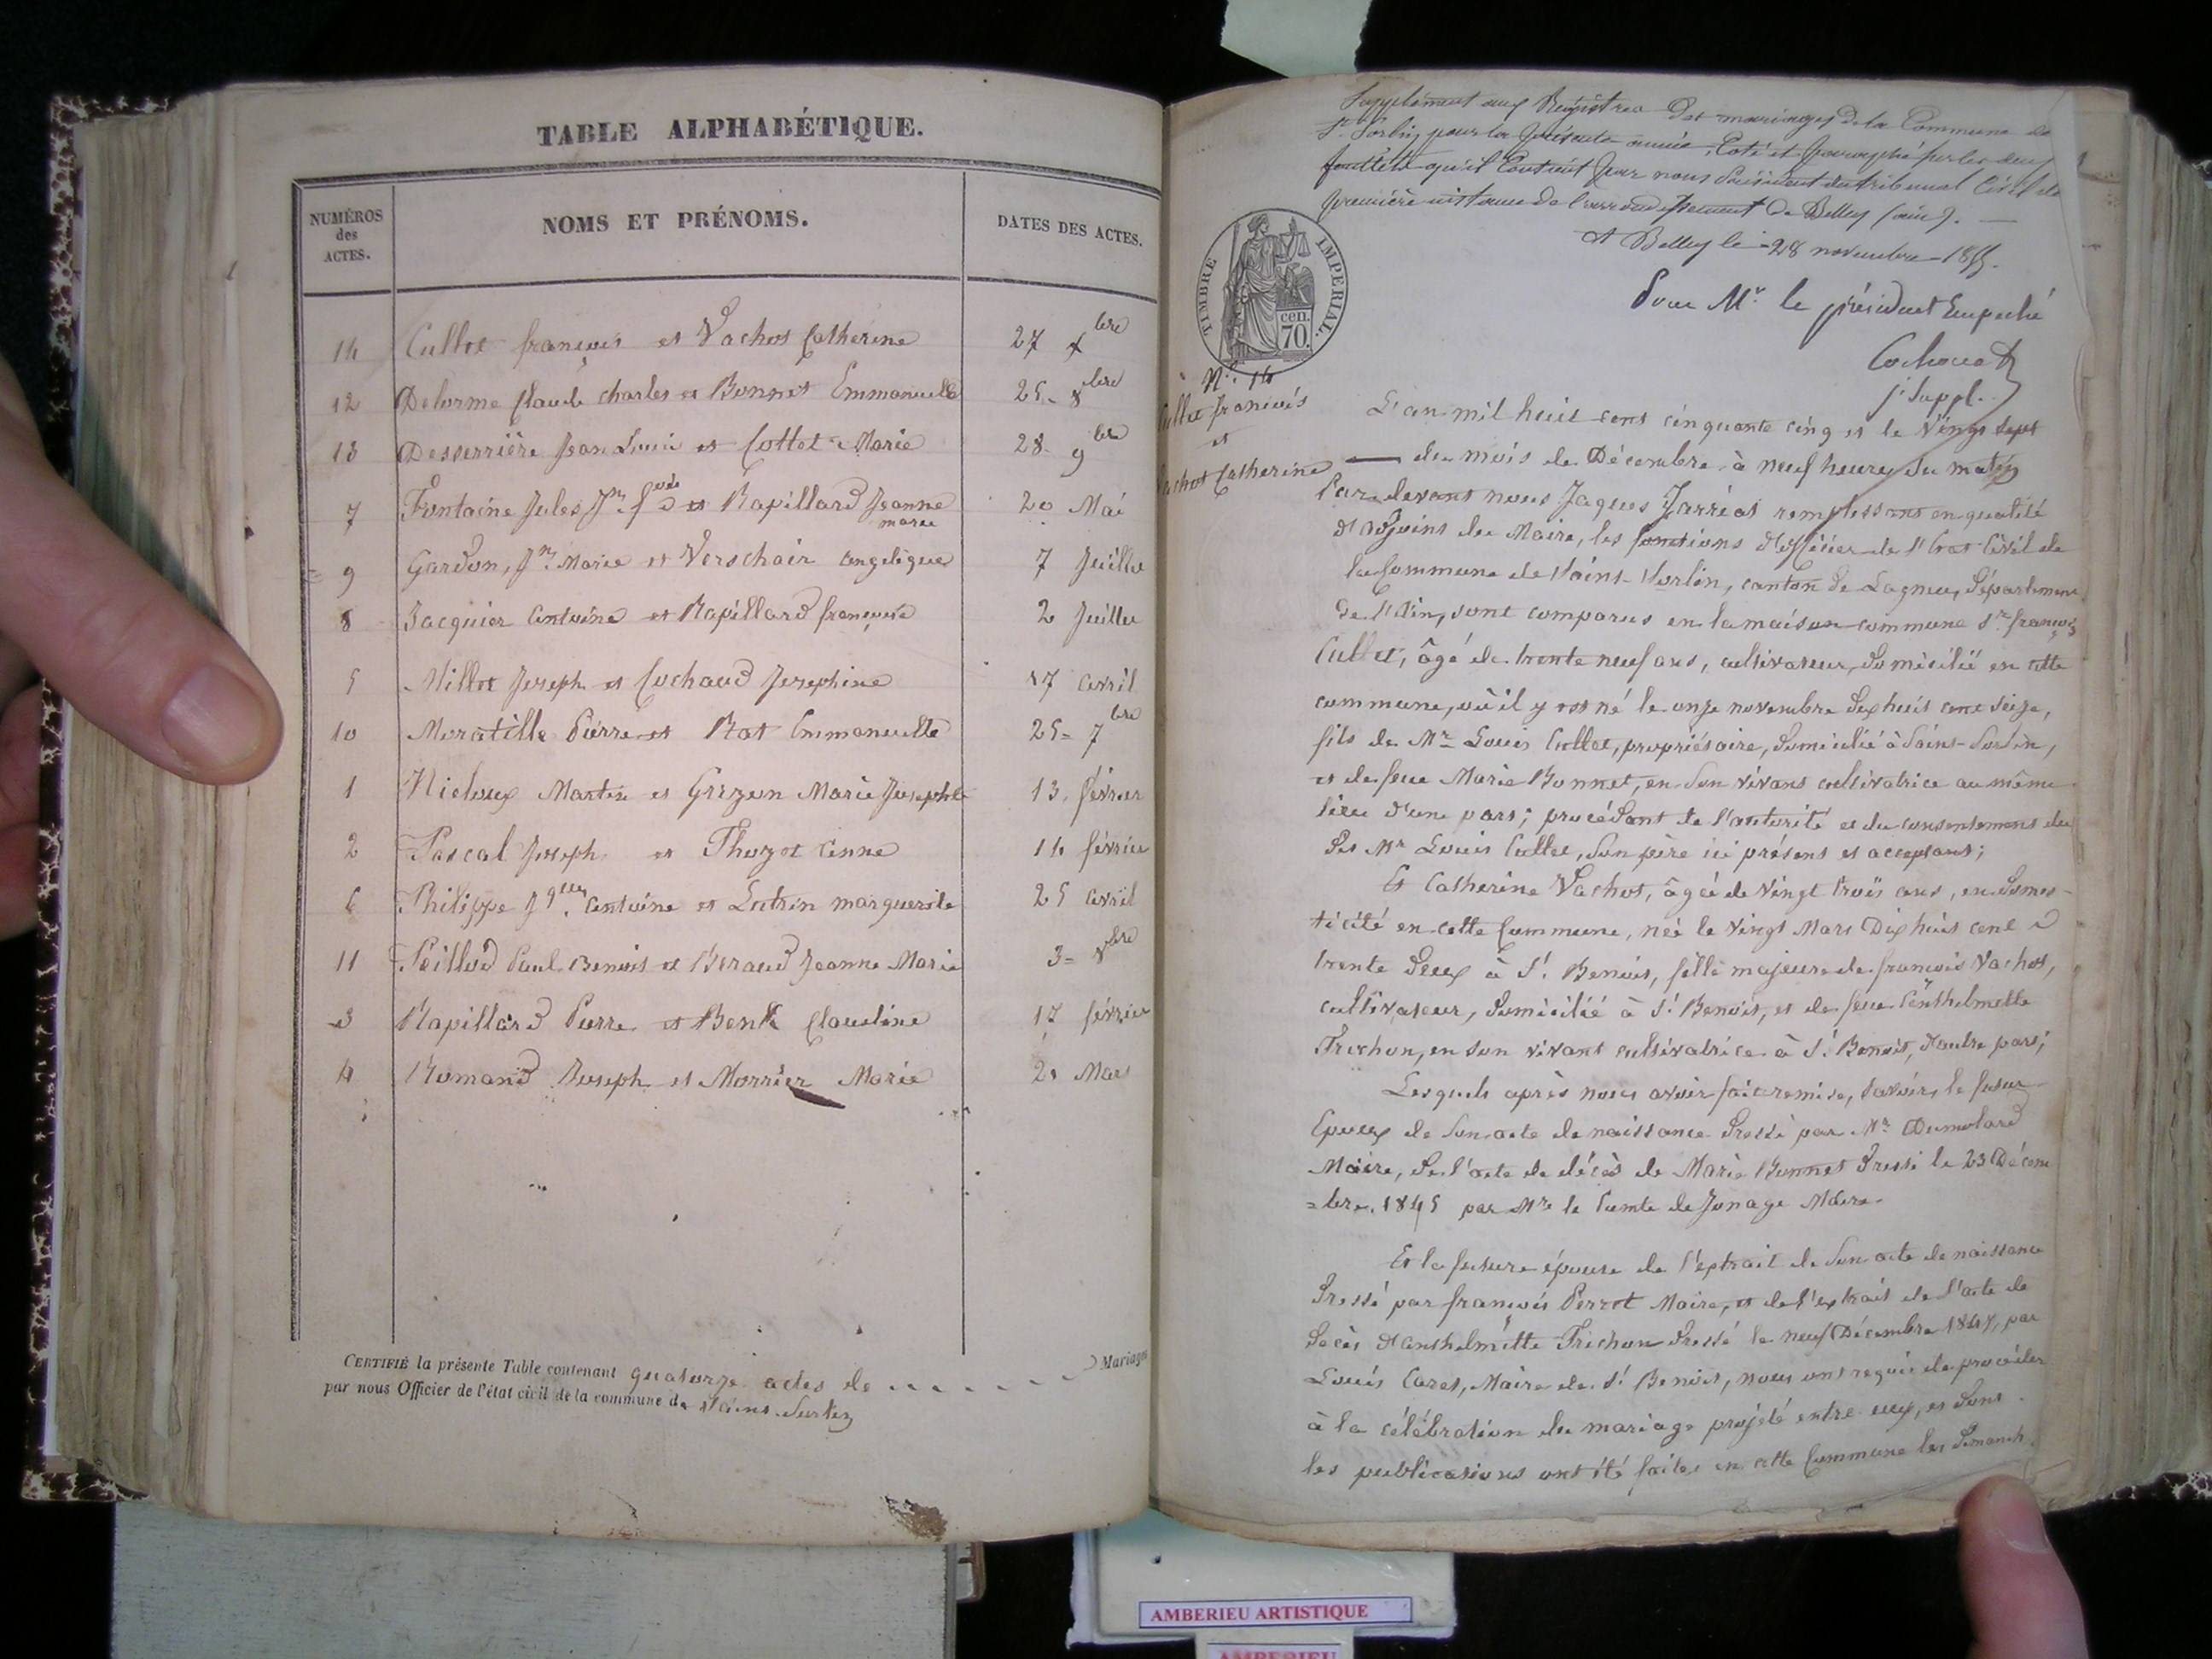 TABLE ALPHABÉTIQUE.
NUMÉROS des ACTES.
NOMS ET PRÉNOMS.
DATES DES ACTES.
14 Cullet françois et Vachot Catherine 27 Xbre
12 Delorme Claude Charles et Bonnet Emmanuelle 25 - 8bre
13 Desserrière Jean Louis et Cottet Marie 28 - 9bre
7 Fontaine Jules Jn fçois et Rapillard Jeanne marie 20 Mai
9 Gardon, Jn Marie et Verschair Angelique 7 Juillet
8 Jacquier Antoine et Rapillard françoise 2 Juillet
5 Millet Joseph et Cochaud Josephine 17 avril
10 Moratille Pierre et Rat Emmanuelle 25 - 7bre
1 Nidoux Martin et Grizon Marie Josephte 13 février
2 Pascal Joseph et Thozot Anne 14 février
6 Philippe Jques Antoine et Lutrin marguerite 25 avril
11 Poillod Paul Benoit et Beraud Jeanne Marie 3 - 8bre
3 Rapillard Pierre et Benk Claudine 17 février
4 Romand Joseph et Morrier Marie 20 Mars
CERTIFIÉ la présente Table contenant quatorze actes de Mariages
par nous Officier de l'état civil de la commune de Saint-Sorlin
Supplément aux Registres des mariages de la Commune de
St Sorlin pour la présente année, Coté et paraphé sur les deux
feuillets qu'il Contient par nous Président du tribunal Civil de
première instance de l'arrondissement de Belley (ain). —
A Belley le 28 novembre 1855.
Pour Mr le président Empêché
Cochonat
j. Suppl.
TIMBRE IMPÉRIAL.
cen. 70.
N° 14
Cullet françois
et
Vachot Catherine
L'an mil huit cent cinquante cinq et le Vingt sept
— du mois de Décembre à neuf heures du matin
Par devant nous Jaques Jarréat remplissant en qualité
d'adjoint du Maire, les fonctions d'officier de l'état Civil de
la Commune de Saint-Sorlin, canton de Lagnieu, département
de l'Ain, sont comparus en la maison commune Sr françois
Cullet, âgé de trente neuf ans, cultivateur, domicilié en cette
commune, où il y est né le onze novembre dix huit cent seize,
fils de Mr Louis Cullet, propriétaire, domicilié à Saint-Sorlin,
et de feue Marie Bonnet, en son vivant cultivatrice au même
lieu d'une part; procédant de l'autorité et du consentement du
dit Mr Louis Cullet, son père ici présent et acceptant;
Et Catherine Vachot, âgée de Vingt trois ans, en domes-
ticité en cette Commune, née le Vingt Mars Dix huit cent
trente deux à St Benoit, fille majeure de françois Vachot,
cultivateur, domicilié à St Benoit, et de feue Anthelmette
Trichon, en son vivant cultivatrice à St Benoit, d'autre part;
Lesquels après nous avoir fait remise, savoir, le futur
Epoux de son acte de naissance dressé par Mr Dumolard
Maire, de l'acte de décès de Marie Bonnet dressé le 23 Décem
=bre 1845 par Mr le Comte de Jonage Maire.
Et la future épouse de l'extrait de son acte de naissance
dressé par françois Perret Maire, et de l'extrait de l'acte de
décès d'Anthelmette Trichon dressé le neuf Décembre 1847, par
Louis Caret, Maire de St Benoit, nous ont requis de procéder
à la célébration du mariage projeté entre eux, et dont
les publications ont été faites en cette Commune les dimanch
AMBERIEU ARTISTIQUE
AMBERIEU